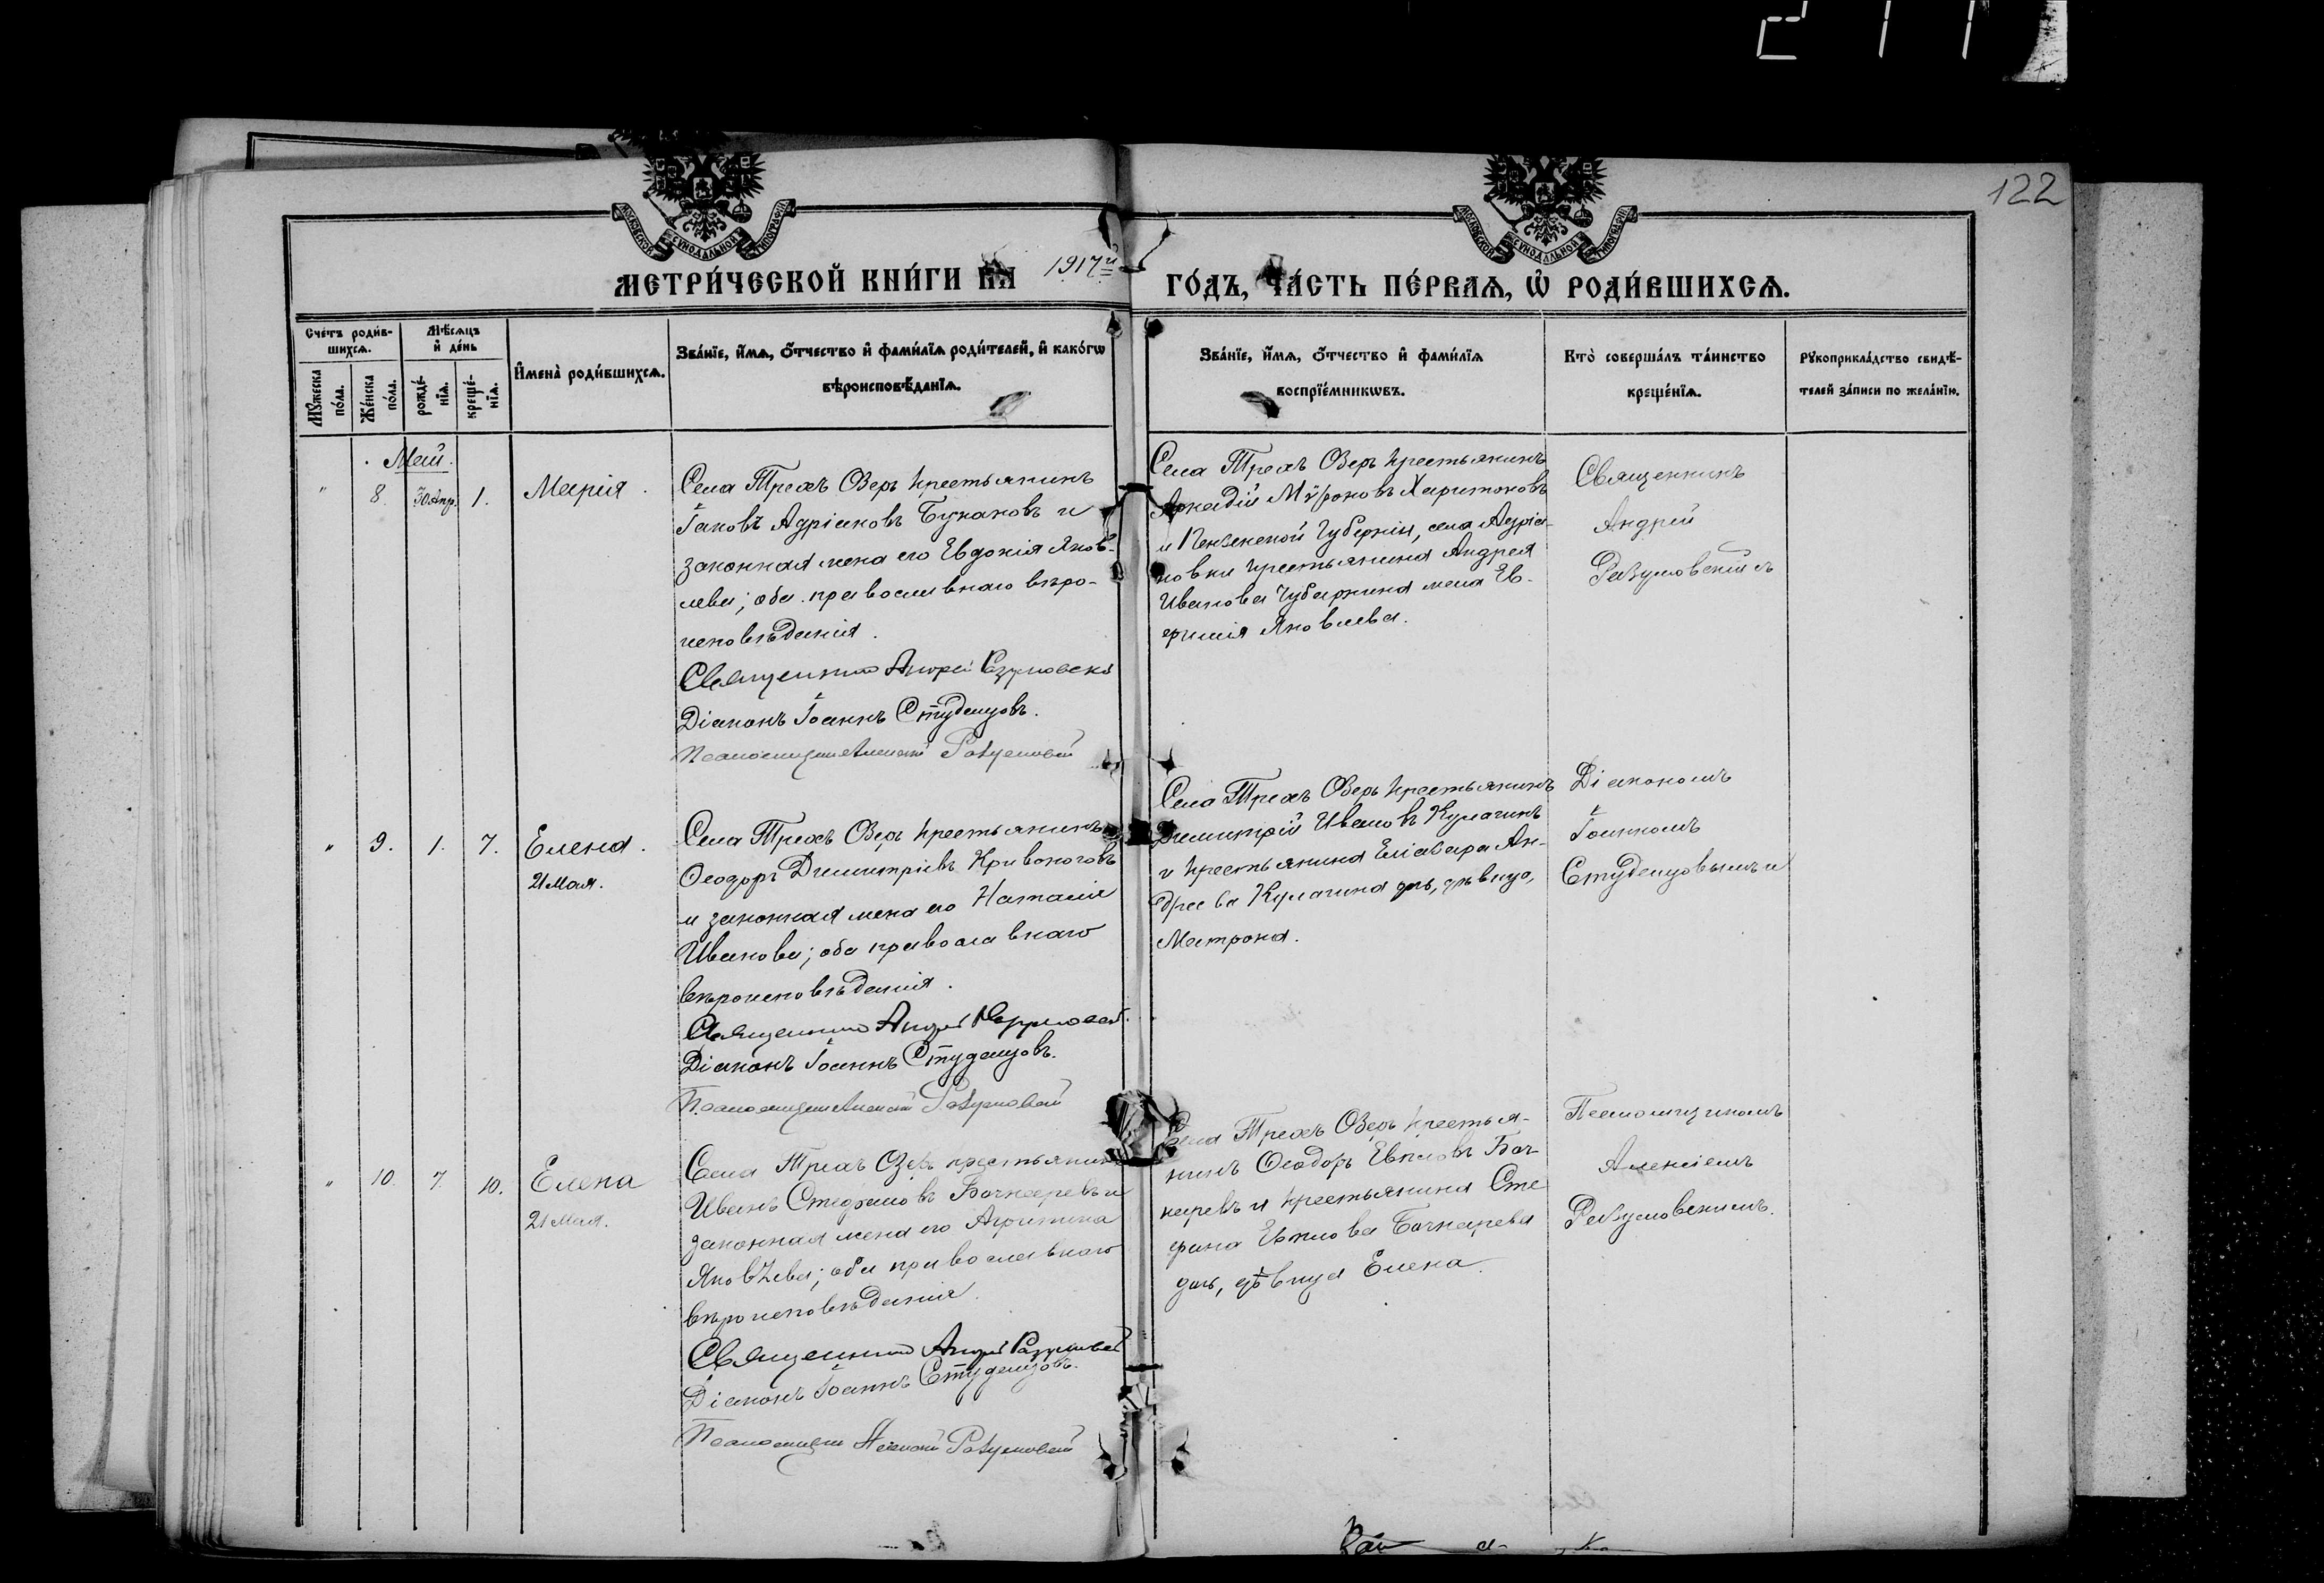 211
122
МОСКОВСКОЙ СѴНОДАЛЬНОЙ ТИПОГРАФІИ
МОСКОВСКОЙ СѴНОДАЛЬНОЙ ТИПОГРАФІИ
МЕТРИ́ЧЕСКОЙ КНИ́ГИ НА 1917й ГО́ДЪ, ЧА́СТЬ ПЕ́РВАЯ, Ѡ РОДИ́ВШИХСЯ.
Сче́тъ роди́в-
шихся.
Мѣ́сяцъ
и де́нь
Му́жеска
по́ла.
Же́нска
по́ла.
рожде́-
нїя.
креще́-
нїя.
Имена̀ роди́вшихся.
Зва́нїе, и́мя, о́тчество и фами́лїя роди́телей, и како́гѡ
вѣроисповѣ́данїя.
Зва́нїе, и́мя, о́тчество и фами́лїя
воспрїе́мникѡвъ.
Кто̀ соверша́лъ та́инство
креще́нїя.
Рукоприкла́дство свидѣ́-
телей за́писи по жела́нїю.
Май.
" 8. 30 Апр. 1. Марія.
Села Трехъ Озеръ крестьянинъ
Іаковъ Адріановъ Букановъ и
законная жена его Евдокія Яков-
лева; оба православнаго вѣро-
исповѣданія.
Священникъ Андрей Разумовскій
Діаконъ Іоаннъ Студенцовъ.
Псаломщикъ Алексій Разумовскій
Села Трехъ Озеръ крестьянинъ
Аркадій Мѵроновъ Харитоновъ
и Пензенской губерніи, села Адріа-
новки крестьянина Андрея
Иванова Губарькина жена Ев-
фимія Яковлева.
Священникъ
Андрей
Разумовскій
" 9. 1. 7. Елена.
21 Мая.
Села Трехъ Озеръ крестьянинъ
Ѳеодоръ Димитріевъ Кривоноговъ
и законная жена его Наталія
Иванова; оба православнаго
вѣроисповѣданія.
Священникъ Андрей Разумовскій
Діаконъ Іоаннъ Студенцовъ.
Псаломщикъ Алексій Разумовскій
Села Трехъ Озеръ крестьянинъ
Димитрій Ивановъ Кулагинъ
и крестьянина Еліазара Ан-
дреева Кулагина дчь, дѣвица,
Матрона.
Діакономъ
Іоанномъ
Студенцовымъ
" 10. 7. 10. Елена
21 Мая.
Села Трехъ Озеръ крестьянинъ
Иванъ Стефановъ Бочкаревъ и
законная жена его Агрипина
Яковлева; оба православнаго
вѣроисповѣданія.
Священникъ Андрей Разумовскій
Діаконъ Іоаннъ Студенцовъ.
Псаломщикъ Алексій Разумовскій
Села Трехъ Озеръ крестья-
нинъ Ѳеодоръ Евпловъ Боч-
каревъ и крестьянина Сте
фана Евплова Бочкарева
дочь, дѣвица Елена.
Псаломщикомъ
Алексіемъ
Разумовскимъ.